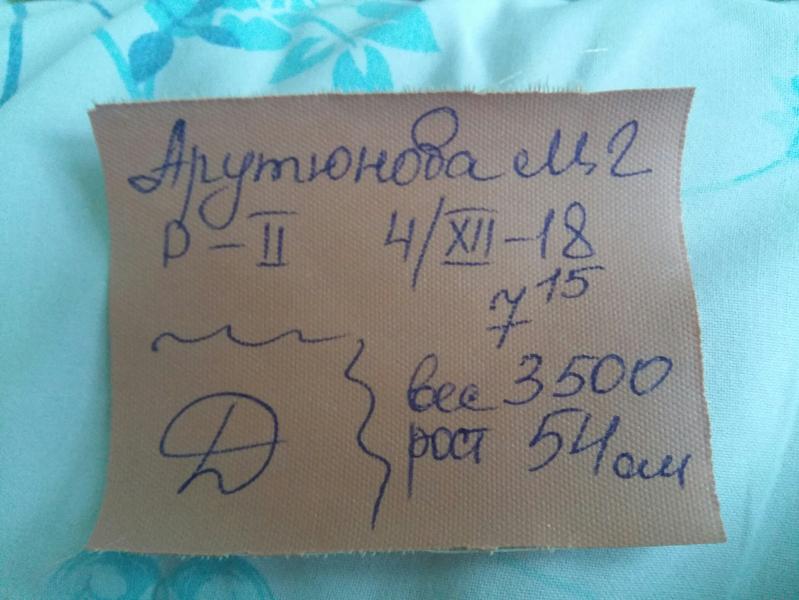 Арутюнова М 2
р - II 4/XII - 18
7 15
вес 3500
рост 54 см
Д